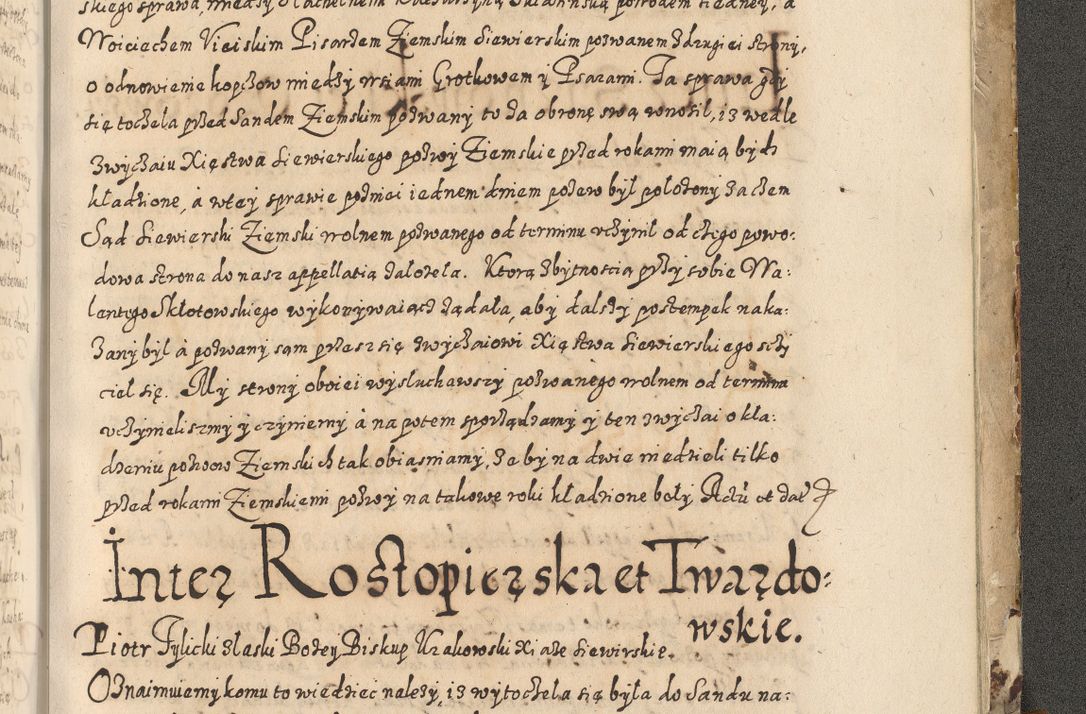 Woiciechem Viciskim Pisarzem Ziemskim Siewierskim pozwanem z drugiei strony,
o odnowienie kopczow miedzy wsiami Grotkowem y Psarami. Ta sprawa gdy
się toczela przed Sandem Ziemskim pozwany to za obronę swą wnosil, iz wedle
zwyczaiu Xięstwa Siewierskiego pozwy Ziemskie przed rokami maią bydz
kładzione, a wtey sprawie podniei iednem dniem pozew był polozony za czem
Sąd Siewierski Ziemski wolnem pozwanego od terminu uczynil od czego powo:
dowa strona do nasz appellatią zalozela. Ktorą z bytnoscią przy sobie Wa:
lantego Skłotowskiego wykonywaiącz ządała, aby dalszy postempek naka:
zany był a pozwany sąm przesz się zwyczaiowi Xięstwa Siewierskiego sczy
ciel się. My strony oboiei wysluchawszy pozwanego wolnem od termina
uczynieliszmy y czyniemy à na potem sporządzamy y ten zwyczai o kła:
dzeniu pozwow Ziemskich tak obiasniamy, ze by na dwie niedzieli tilko
przed rokami Ziemskiemi pozwy na takowe roki kładzione beły Actũ et dat
Inter Rostopierska et Twardo:
wskie.
Piotr Tylicki z laski Bozey Biskup Krakowski Xiąze Siewirskie.
Oznaimuiemy komu to wiedziec nalezy, iz wytoczela się była do Sandu na: